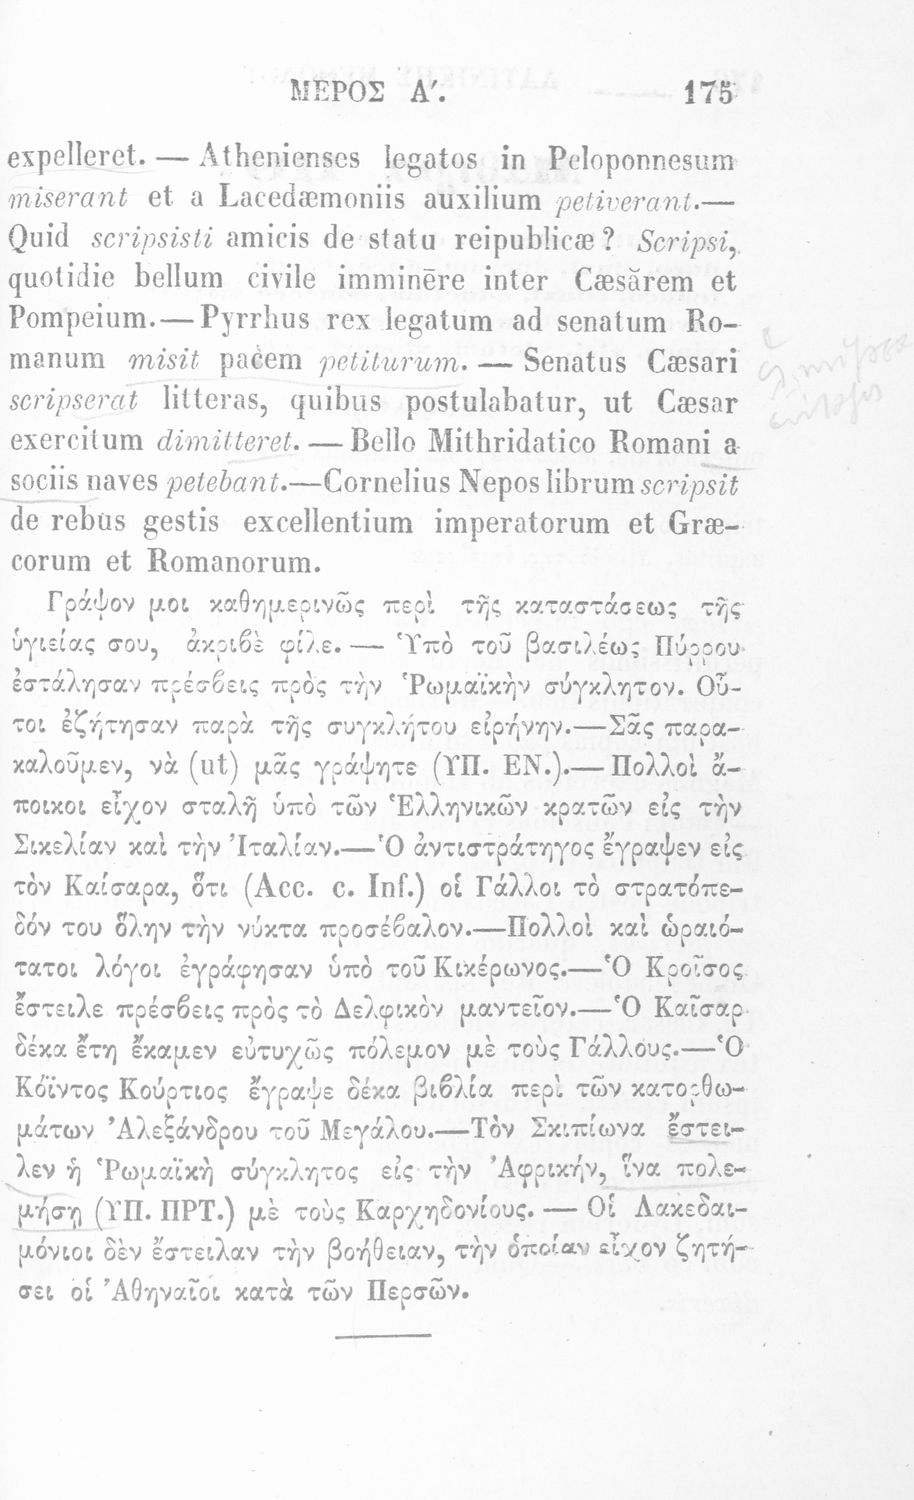 ΜΕΡΟΣ Α΄. 175
expelleret. — Athenienses legatos in Peloponnesum
miserant et a Lacedæmoniis auxilium petiverant.—
Quid scripsisti amicis de statu reipublicæ? Scripsi,
quotidie bellum civile imminēre inter Cæsărem et
Pompeium.—Pyrrhus rex legatum ad senatum Ro-
manum misit pacem petiturum. — Senatus Cæsari
scripserat litteras, quibus postulabatur, ut Cæsar
exercitum dimitteret. — Bello Mithridatico Romani a
sociis naves petebant.—Cornelius Nepos librum scripsit
de rebus gestis excellentium imperatorum et Græ-
corum et Romanorum.
Γράψον μοι καθημερινῶς περὶ τῆς καταστάσεως τῆς
ὑγιείας σου, ἀκριβὲ φίλε. — Ὑπὸ τοῦ βασιλέως Πύρρου
ἐστάλησαν πρέσβεις πρὸς τὴν Ῥωμαϊκὴν σύγκλητον. Οὗ-
τοι ἐζήτησαν παρὰ τῆς συγκλήτου εἰρήνην.—Σᾶς παρα-
καλοῦμεν, νὰ (ut) μᾶς γράψητε (ΥΠ. ΕΝ.).— Πολλοὶ ἄ-
ποικοι εἶχον σταλῆ ὑπὸ τῶν Ἑλληνικῶν κρατῶν εἰς τὴν
Σικελίαν καὶ τὴν Ἰταλίαν.—Ὁ ἀντιστράτηγος ἔγραψεν εἰς
τὸν Καίσαρα, ὅτι (Acc. c. Inf.) οἱ Γάλλοι τὸ στρατόπε-
δόν του ὅλην τὴν νύκτα προσέβαλον.—Πολλοὶ καὶ ὡραιό-
τατοι λόγοι ἐγράφησαν ὑπὸ τοῦ Κικέρωνος.—Ὁ Κροῖσος
ἔστειλε πρέσβεις πρὸς τὸ Δελφικὸν μαντεῖον.—Ὁ Καῖσαρ
δέκα ἔτη ἔκαμεν εὐτυχῶς πόλεμον μὲ τοὺς Γάλλους.—Ὁ
Κόϊντος Κούρτιος ἔγραψε δέκα βιβλία περὶ τῶν κατορθω-
μάτων Ἀλεξάνδρου τοῦ Μεγάλου.—Τὸν Σκιπίωνα ἔστει-
λεν ἡ Ῥωμαϊκὴ σύγκλητος εἰς τὴν Ἀφρικήν, ἵνα πολε-
μήσῃ (ΥΠ. ΠΡΤ.) μὲ τοὺς Καρχηδονίους. — Οἱ Λακεδαι-
μόνιοι δὲν ἔστειλαν τὴν βοήθειαν, τὴν ὁποίαν εἶχον ζητή-
σει οἱ Ἀθηναῖοι κατὰ τῶν Περσῶν.